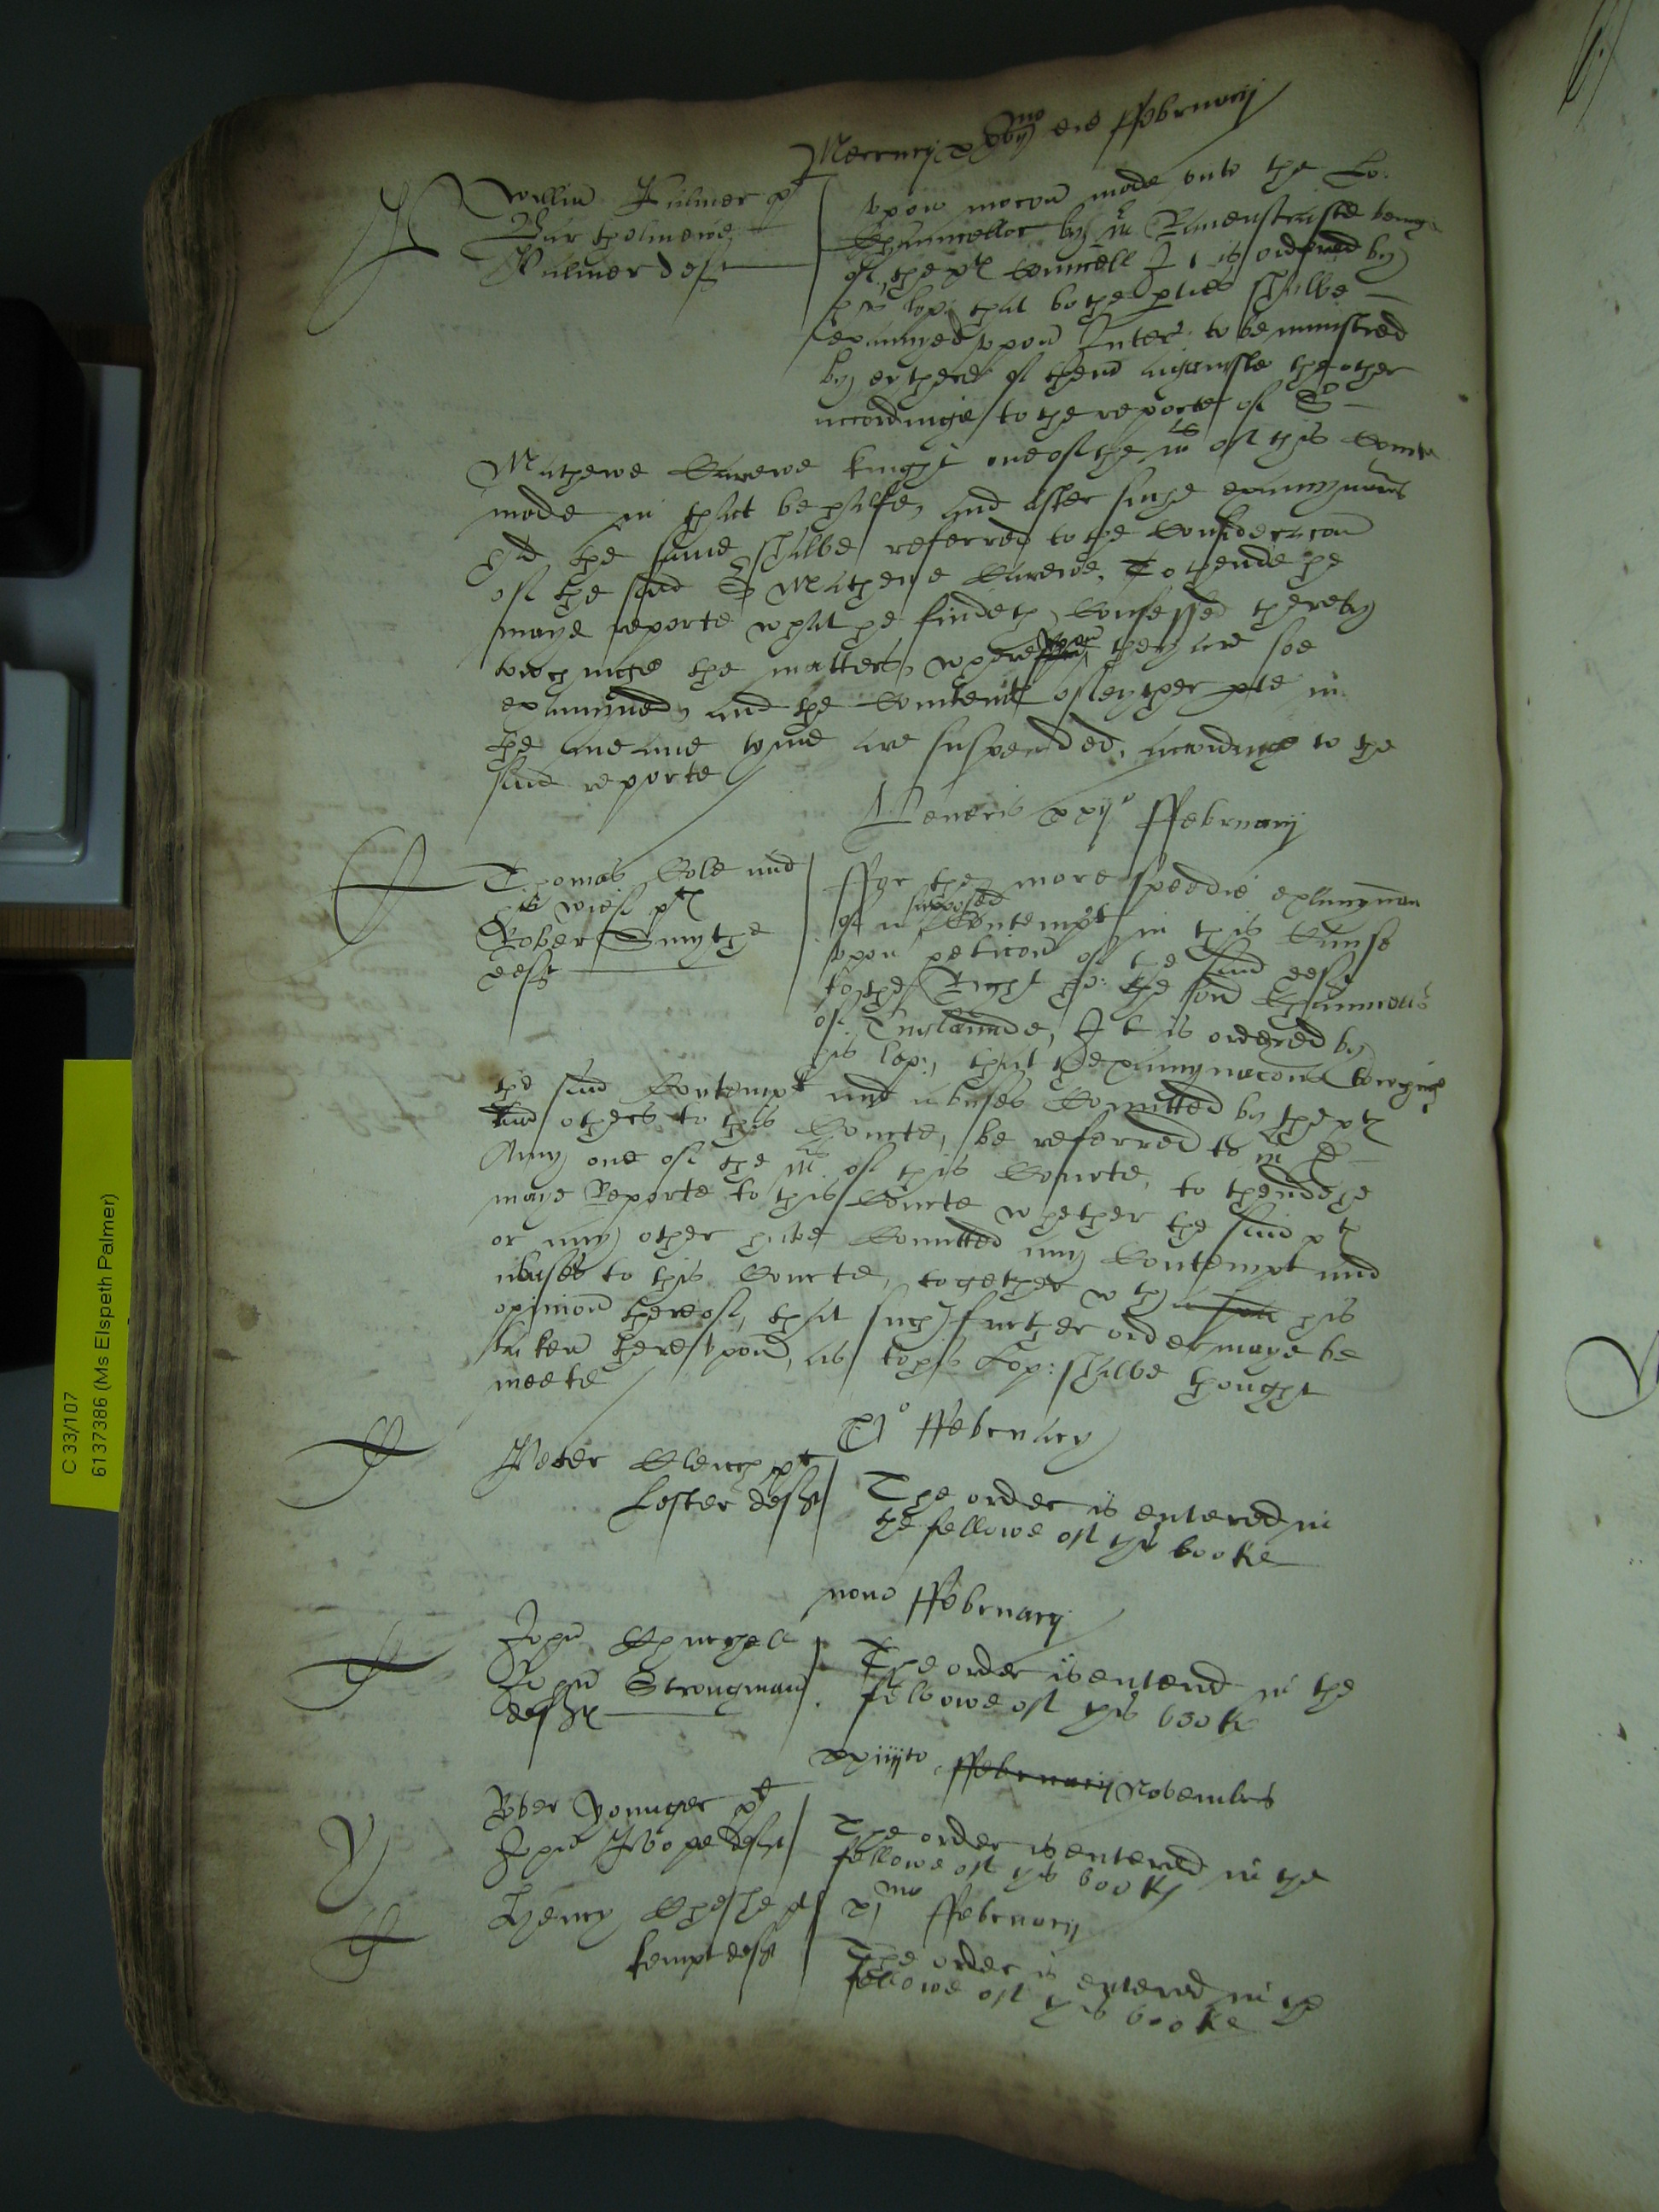 Mercurij xvjmo die Ffebruarij
Willm Palmer pl
Barthelmewe
Palmer deft
Upon mocon made unto the Lo:
Chauncellor by mr being
of the pl councell It is ordered by
his lop: that bothe pties shalbe
examyned upon Inter: to be ministred
by eythere of them againste the other
accordinge to the reporte of Sr
Mathewe Carewe knight one of the mrs of this Courte
made in that behalfe, and after suche examynacons
the same shalbe referred to the Consideracon
of the said Sr Mathewe Carewe, To thende he
maye reporte what he findeth Confessed thereby
towchinge the matters, whereuppon they are soe
examyned, and the Contempts of eyther ptie in
the meane tyme are suspended, accordinge to the
said reporte
Veneris xxijo Ffebruarij
Thomas Cole and
his wief pl
Robert Smythe
deft
Ffor the more speedie examynacon
of a supposed Contempt in this Cause
upon peticon of the said deft
to the Right ho: the lord Chauncellr
of Englaunde, It is ordered by
his lop:, that thexamynacons towchinge
the said Contempt and abuses Comitted by the pl
and others to this Courte, be referred to mr D
Amy one of the mrs of this Courte, to thende he
maye Reporte to this Courte whether the said pl
or any other have Comitted any Contempt and
abuses to this Courte, together wth his
opinion thereof, that such further order maye be
taken thereupon, as to his Lop: shalbe thought
meete
xjo Ffebruary
Peter Clench pl
Lester deft
The order is entered in
the fellowe of this booke
nono Ffebruarij
John Churchell
John Strongman
deft
The order is entered in the
fellowe of this booke
xxiiijto Ffebruarij Novembris
Rober Younger pl
John Poope deft
The order is entered in the
fellowe of this booke
xjmo Ffebruarij
Henry pl
kempe deft
The order is entered in the
fellowe of this booke
C 33/107
6137386 (Ms Elspeth Palmer)